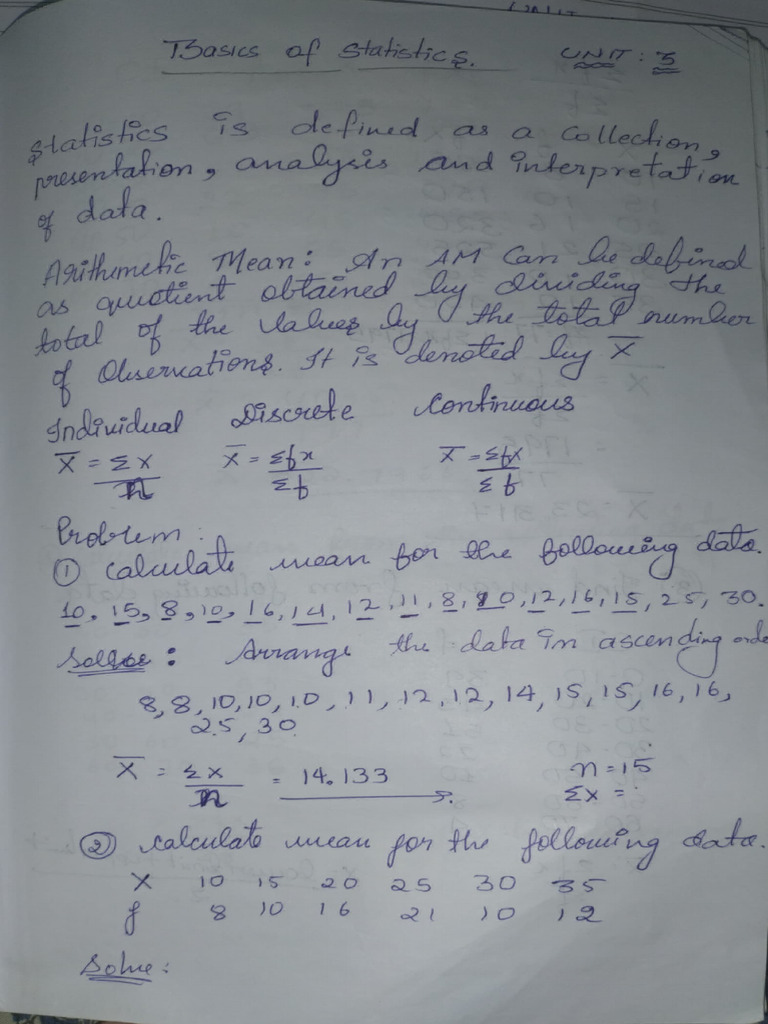 Basics of Statistics. UNIT : 3
Statistics is defined as a collection,
presentation, analysis and interpretation
of data.
Arithmetic Mean: An AM can be defined
as quotient obtained by dividing the
total of the values by the total number
of Observations. It is denoted by X̄
Individual Discrete Continuous
X̄ = Σx/n X̄ = Σfx/Σf X̄ = Σfx/Σf
Problem:
① Calculate mean for the following data.
10, 15, 8, 10, 16, 14, 12, 11, 8, 10, 12, 16, 15, 25, 30.
Solve: Arrange the data in ascending orde
8, 8, 10, 10, 10, 11, 12, 12, 14, 15, 15, 16, 16,
25, 30
X̄ = Σx/n = 14.133 n = 15
Σx =
② Calculate mean for the following data.
X 10 15 20 25 30 35
f 8 10 16 21 10 12
Solve: